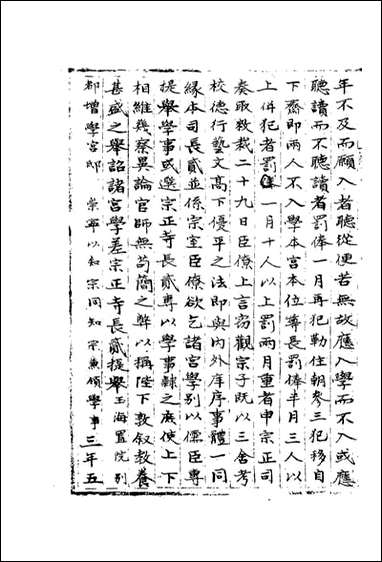 年不及而願入者聽從便若無故應入學而不入或應
聽讀而不聽讀者罰俸一月再犯勒住朝參三犯移自
下齋即兩人不入學本宮本位尊長罰俸半月三人以
上併犯者罰俸一月十人以上罰兩月重者申宗正司
奏取敕裁二十九日臣僚上言竊觀宗子既以三舍考
校德行藝文高下優平之法即與內外庠序事體一同
緣本司長貳並係宗室臣僚欲乞諸宮學別以儒臣專
提舉學事或選宗正寺長貳專以學事隸之庶使上下
相維幾察異論官師無苟簡之弊以稱陛下敦叙教養
甚盛之舉詔諸宮學差宗正寺長貳提舉玉海置院別
都增學宮郎 崇寧以知宗同知宗兼領學事三年五